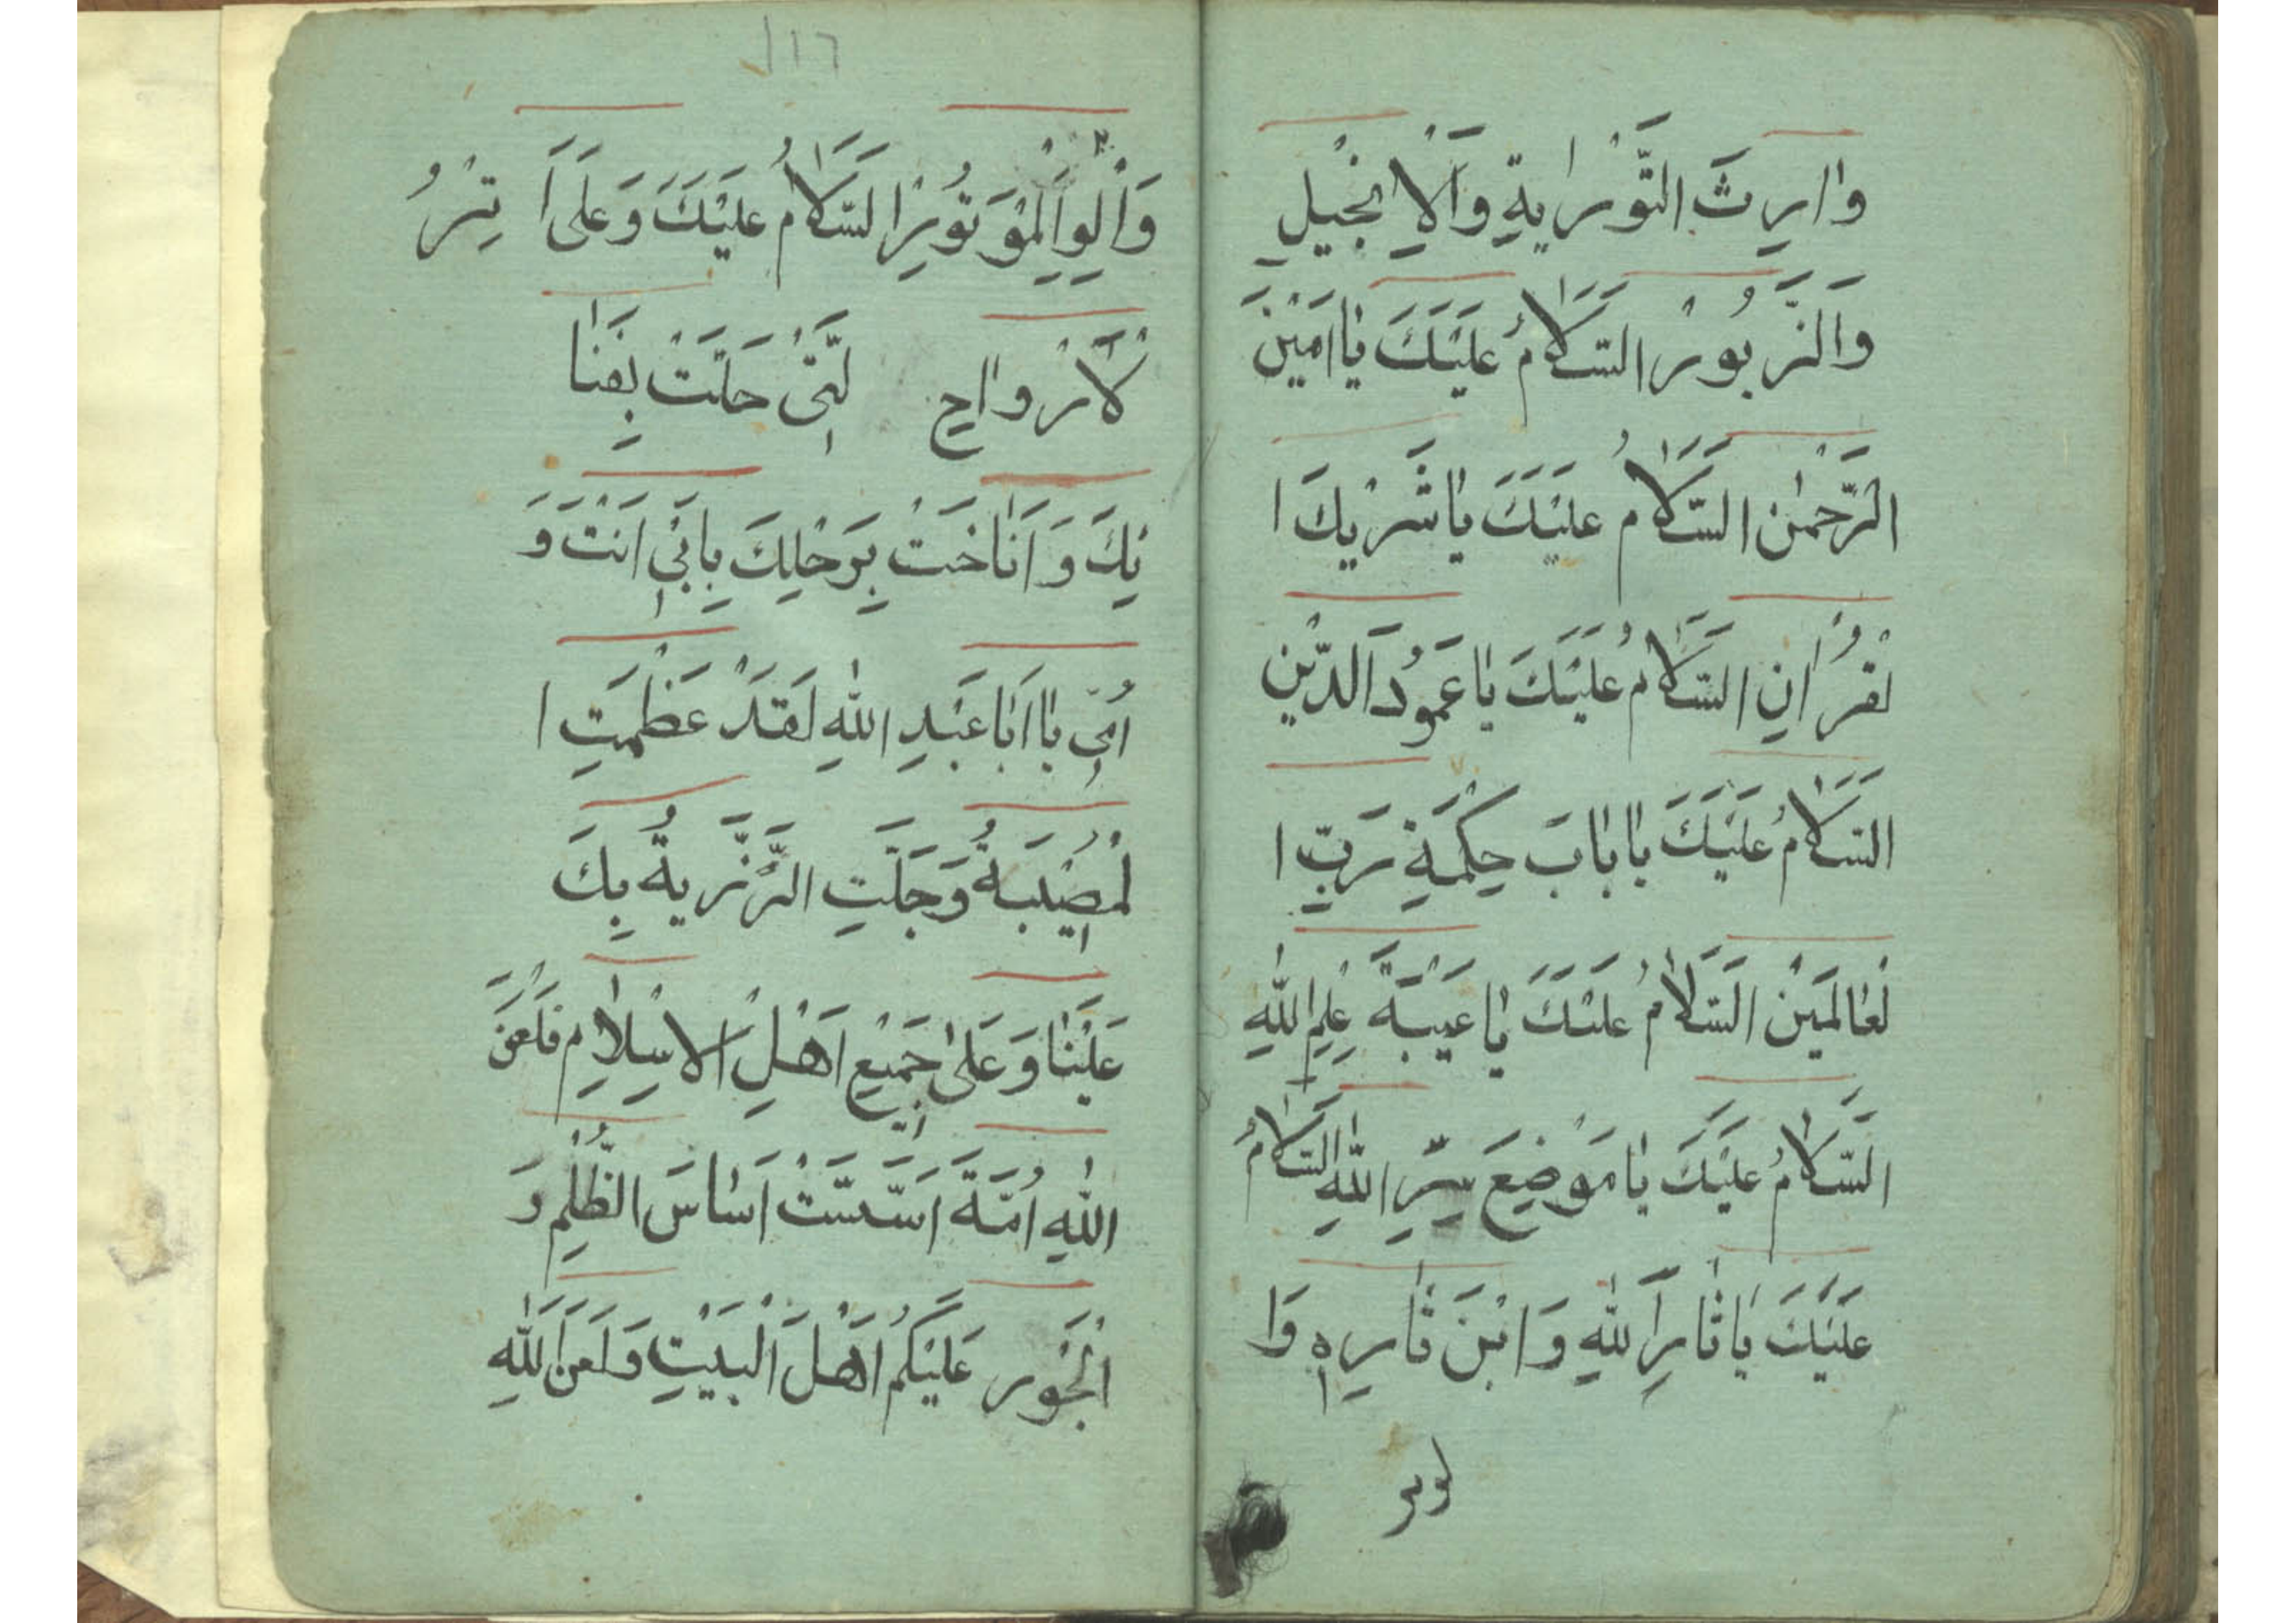 وَاارِثَ التَّوْرٰايةِ وَالْاِنْجٖيلِ
وَالزَّبُورْ السَّلٰامُ عَلَيْكَ يٰا اَمَيْنَ
الرَّحْمٰنِ السَّلٰامُ عَلَيْكَ يٰا شَرْيكَ ا
لْقُرُانِ السَّلٰامُ عَلَيْكَ يٰا عَمُودَ الدّٖيْنِ
السَّلٰامُ عَلَيْكَ يٰا بٰابَ حِكْمَةِ رَبِّ ا
لْعٰالَمَيْنْ السَّلٰامُ عَلَيْكَ يٰا عَيْبَةَ عِلْمِ اللّٰهِ
السَّلٰامُ عَلَيْكَ يٰا مَوْضِعَ سِرِّ اللّٰهِ السَّلٰامُ
عَلَيْكَ يٰا ثٰارَاللّٰهِ وَابْنَ ثٰارِهٖ وَا
لوتر
١١٦
وَالْوِالْمُوَتُورْ السَّلٰامُ عَلَيْكَ وَعَلَى اَ
لْاَرْوااحِ لَّتٖى حَلَّتْ بِفَنٰا
ئِكَ وَ اَنٰاخَتْ بِرَحْلِكَ بِاَبٖى اَنْتَ وَ
اُمّٖى يٰا اَبٰا عَبْدِ اللّٰهِ لَقَدْ عَظُمَتِ ا
لْمُصٖيْبَةُ وَجَلَّتِ الرَّزَّيةُ بِكَ
عَلَيْنٰا وَعَلىٰ جَمٖيْعِ اَهْلِ الْاِسْلٰامِ فَلَعَنَ
اللّٰهِ اُمَّةَ اَسَّسَتْ اَسٰاسَ الظُّلْمِ وَ
الْجَوْر عَلَيْكُمْ اَهْلَ الْبَيْتِ وَلَعَنَ اللّٰهِ